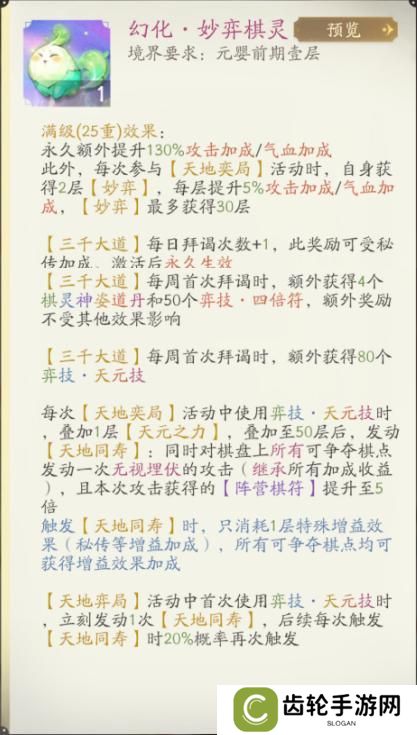 幻化·妙弈棋灵
预览
境界要求：元婴前期壹层
1
满级(25重)效果：
永久额外提升130%攻击加成/气血加成
此外，每次参与【天地奕局】活动时，自身获
得2层【妙弈】，每层提升5%攻击加成/气血加
成，【妙弈】最多获得30层
【三千大道】每日拜谒次数+1，此奖励可受秘
传加成，激活后永久生效
【三千大道】每周首次拜谒时，额外获得4个
棋灵神姿道丹和50个弈技·四倍符，额外奖励
不受其他效果影响
【三千大道】每周首次拜谒时，额外获得80个
弈技·天元技
每次【天地奕局】活动中使用弈技·天元技时
，叠加1层【天元之力】，叠加至50层后，发动
【天地同寿】：同时对棋盘上所有可争夺棋点
发动一次无视埋伏的攻击（继承所有加成收益
），且本次攻击获得的【阵营棋符】提升至5
倍
触发【天地同寿】时，只消耗1层特殊增益效
果（秘传等增益加成），所有可争夺棋点均可
获得增益效果加成
【天地弈局】活动中首次使用弈技·天元技时
，立刻发动1次【天地同寿】，后续每次触发
【天地同寿】时20%概率再次触发
齿轮手游网
SLOGAN